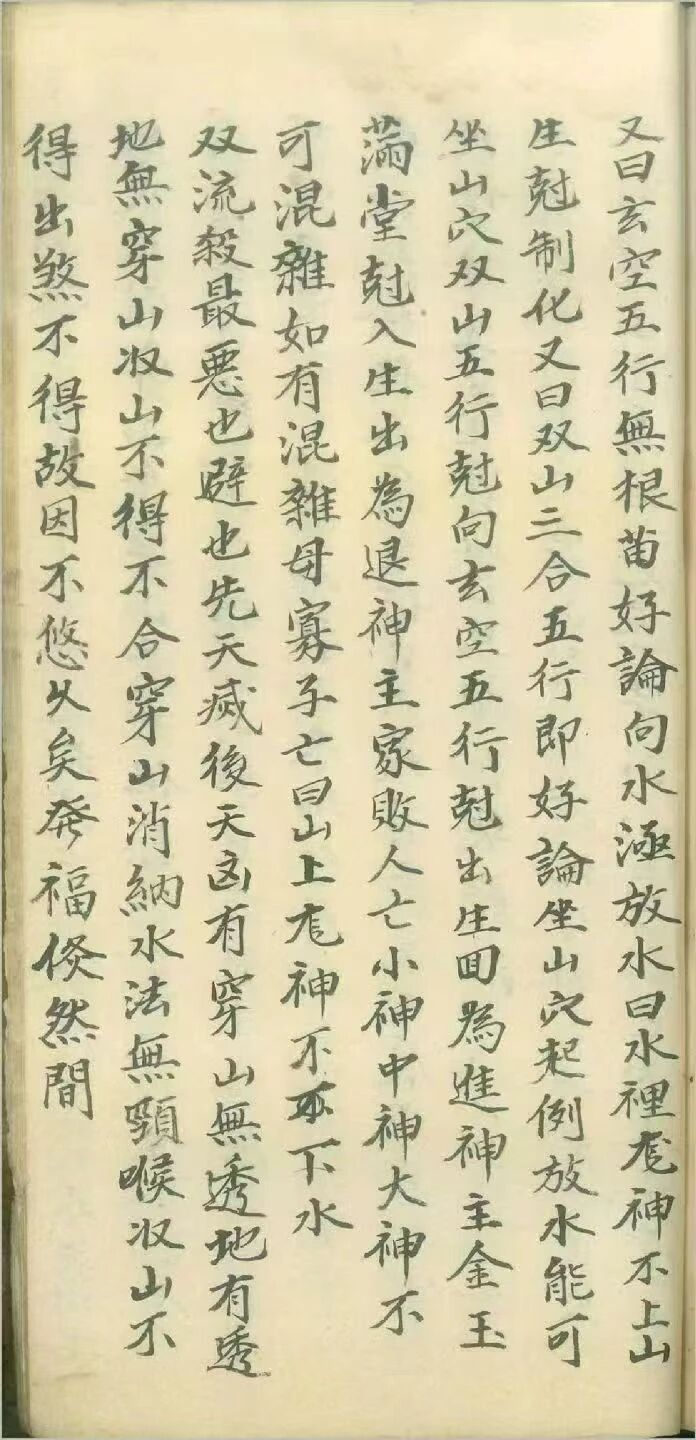 又曰玄空五行無根苗好論向水極放水曰水裡龙神不上山
生尅制化又曰双山三合五行即好論坐山穴起例放水能可
坐山穴双山五行尅向玄空五行尅出生回為進神主金玉
滿堂尅入生出為退神主家敗人亡小神中神大神不
可混雜如有混雜母寡子亡曰山上龙神不下水
双流殺最悪也避也先天滅後天凶有穿山無透地有透
地無穿山収山不得不合穿山消納水法無顎喉収山不
得出煞不得故因不悠久矣發福倏然間